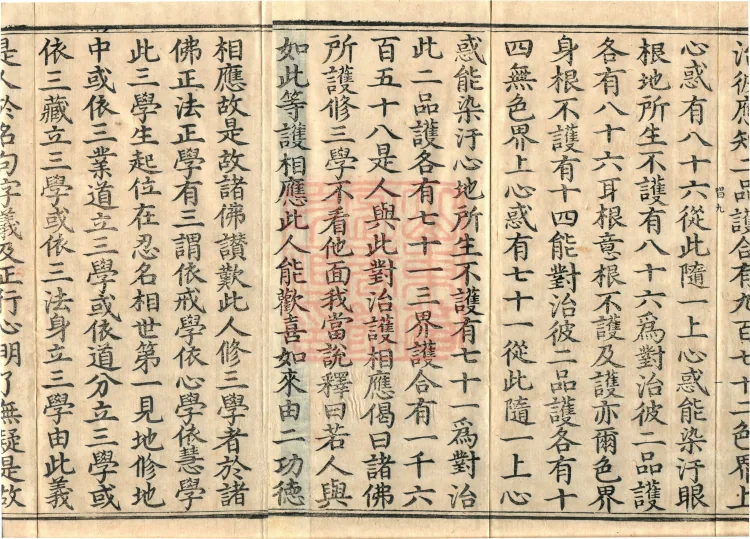 治彼應知二品護合有九百七十一色界上
心惑有八十六從此隨一上心惑能染汙眼
根地所生不護有八十六爲對治彼二品護
各有八十六耳根意根不護及護亦爾色界
身根不護有十四能對治彼二品護各有十
四無色界上心惑有七十一從此隨一上心
惑能染汙心地所生不護有七十一爲對治
此二品護各有七十一三界護合有一千六
百五十八是人與此對治護相應偈曰諸佛
所護修三學不看他面我當說釋曰若人與
如此等護相應此人能歡喜如來由二功德
相應故是故諸佛讃歎此人修三學者於諸
佛正法正學有三謂依戒學依心學依慧學
此三學生起位在忍名相世第一見地修地
中或依三業道立三學或依道分立三學或
依三藏立三學或依三法身立三學由此義
是人於名句字義及正行心明了無疑是故